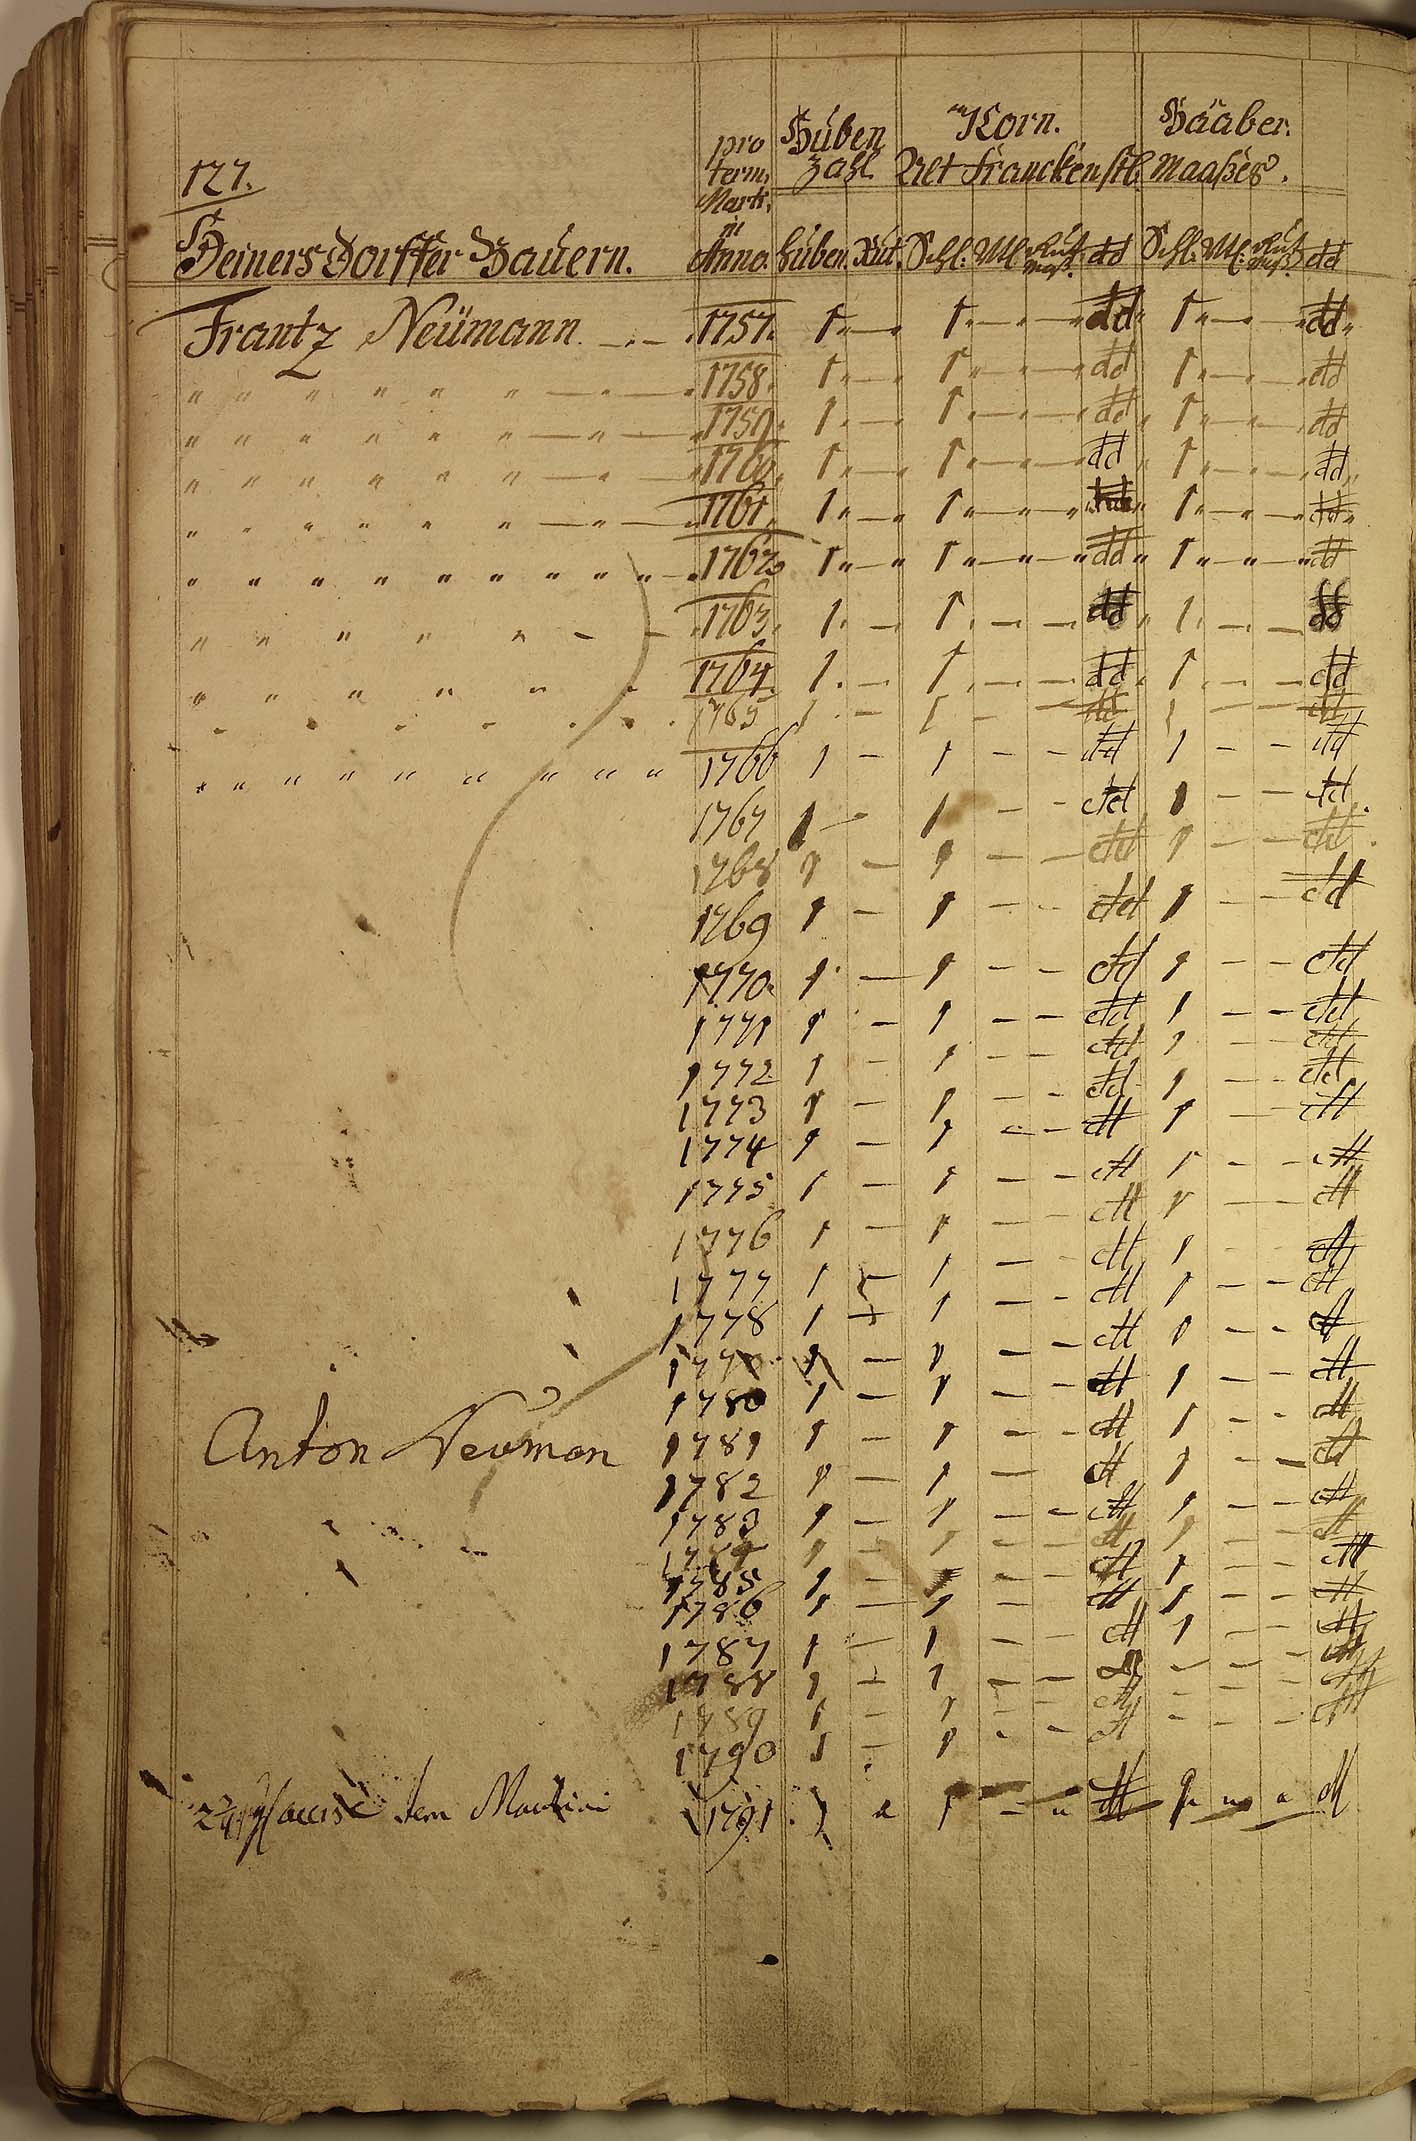 127.
pro term. Mart. in Anno.
Huben Zahl
Korn.
Haaber.
Alt Franckenstl. Maaßes.
Heinersdorffer Bauern.
Huben. Rut. Schl. Ml. dd Schl. Ml. dd
Frantz Neümann. 1757. 1 „ — 1 „ — „ — „ dd „ 1 „ — „ — „ dd „
" " " " " " — " — 1758. 1 „ — 1 „ dd 1 „ — dd
" " " " " " — " — 1759. 1 — 1 — dd „ 1 „ — dd
" " " " " " — " 1760. 1 „ — 1 „ — dd „ 1 „ — dd „
" " " " " " — " — 1761. 1 „ — 1 „ dd „ 1 „ — dd „
" " " " " " " " " " — 1762. 1 „ — „ 1 „ — „ — „ dd „ 1 „ — „ — „ dd
" " " " " — — 1763. 1. — 1. — — dd „ 1. — — dd
" " " " " " 1764. 1. — 1. — — dd. 1. — — dd
" " " " " " 1765 1 — 1 — — dd 1 — — dd
" " " " " " " " " " 1766 1 — 1 — — dd 1 — — dd
1767 1 — 1 — — dd 1 — — dd.
1768 1 — 1 — — dd 1 — — dd.
1769 1 — 1 — — dd 1 — — dd
1770. 1. — 1 — — dd 1 — — dd
1771 1 — 1 — — dd 1 — — dd
1772 1 — 1 — — dd 1 — — dd
1773 1 — 1 — — dd 1 — — dd
1774 1 — 1 — — dd 1 — — dd
1775 1 — 1 — — dd 1 — — dd
1776 1 — 1 — — dd 1 — — dd
1777 1 — 1 — — dd 1 — — dd
1778 1 — 1 — — dd 1 — — dd
1779 1 — 1 — — dd 1 — — dd
1780 1 — 1 — — dd 1 — — dd
Anton Neuman 1781 1 — 1 — — dd 1 — — dd
1782 1 — 1 — dd 1 — — dd
1783 1 — 1 — — dd 1 — — dd
1784 1 — 1 — — dd 1 — — dd
1785 1 — 1 — — dd 1 — — dd
1786 1 — 1 — — dd 1 — — dd
1787 1 — 1 — — dd 1 — — dd
1788 1 — 1 — — dd — — — dd
1789 1 — 1 — — dd — — — dd
1790 1 — 1 — — dd — — — dd
tem Martini 1791. 1 1 — dd